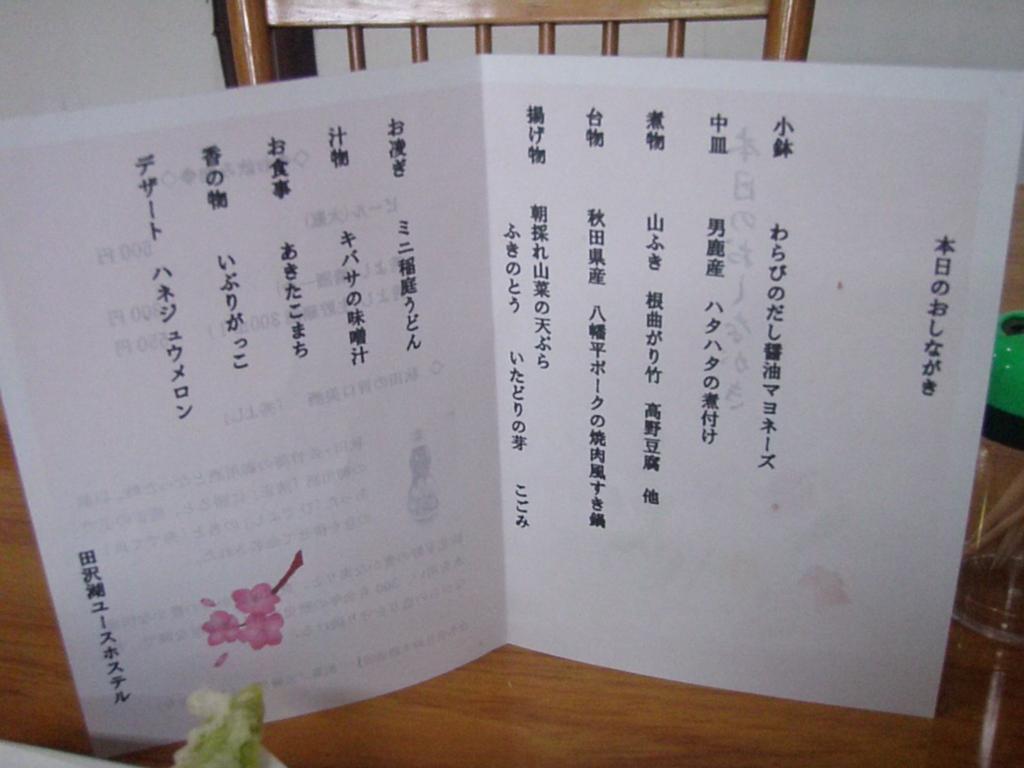 本日のおしながき
小鉢　わらびのだし醤油マヨネーズ
中皿　男鹿産　ハタハタの煮付け
煮物　山ふき　根曲がり竹　高野豆腐　他
台物　秋田県産　八幡平ポークの焼肉風すき鍋
揚げ物　朝採れ山菜の天ぷら
ふきのとう　いたどりの芽　こごみ
お凌ぎ　ミニ稲庭うどん
汁物　ギバサの味噌汁
お食事　あきたこまち
香の物　いぶりがっこ
デザート　ハネジュウメロン
田沢湖ユースホステル